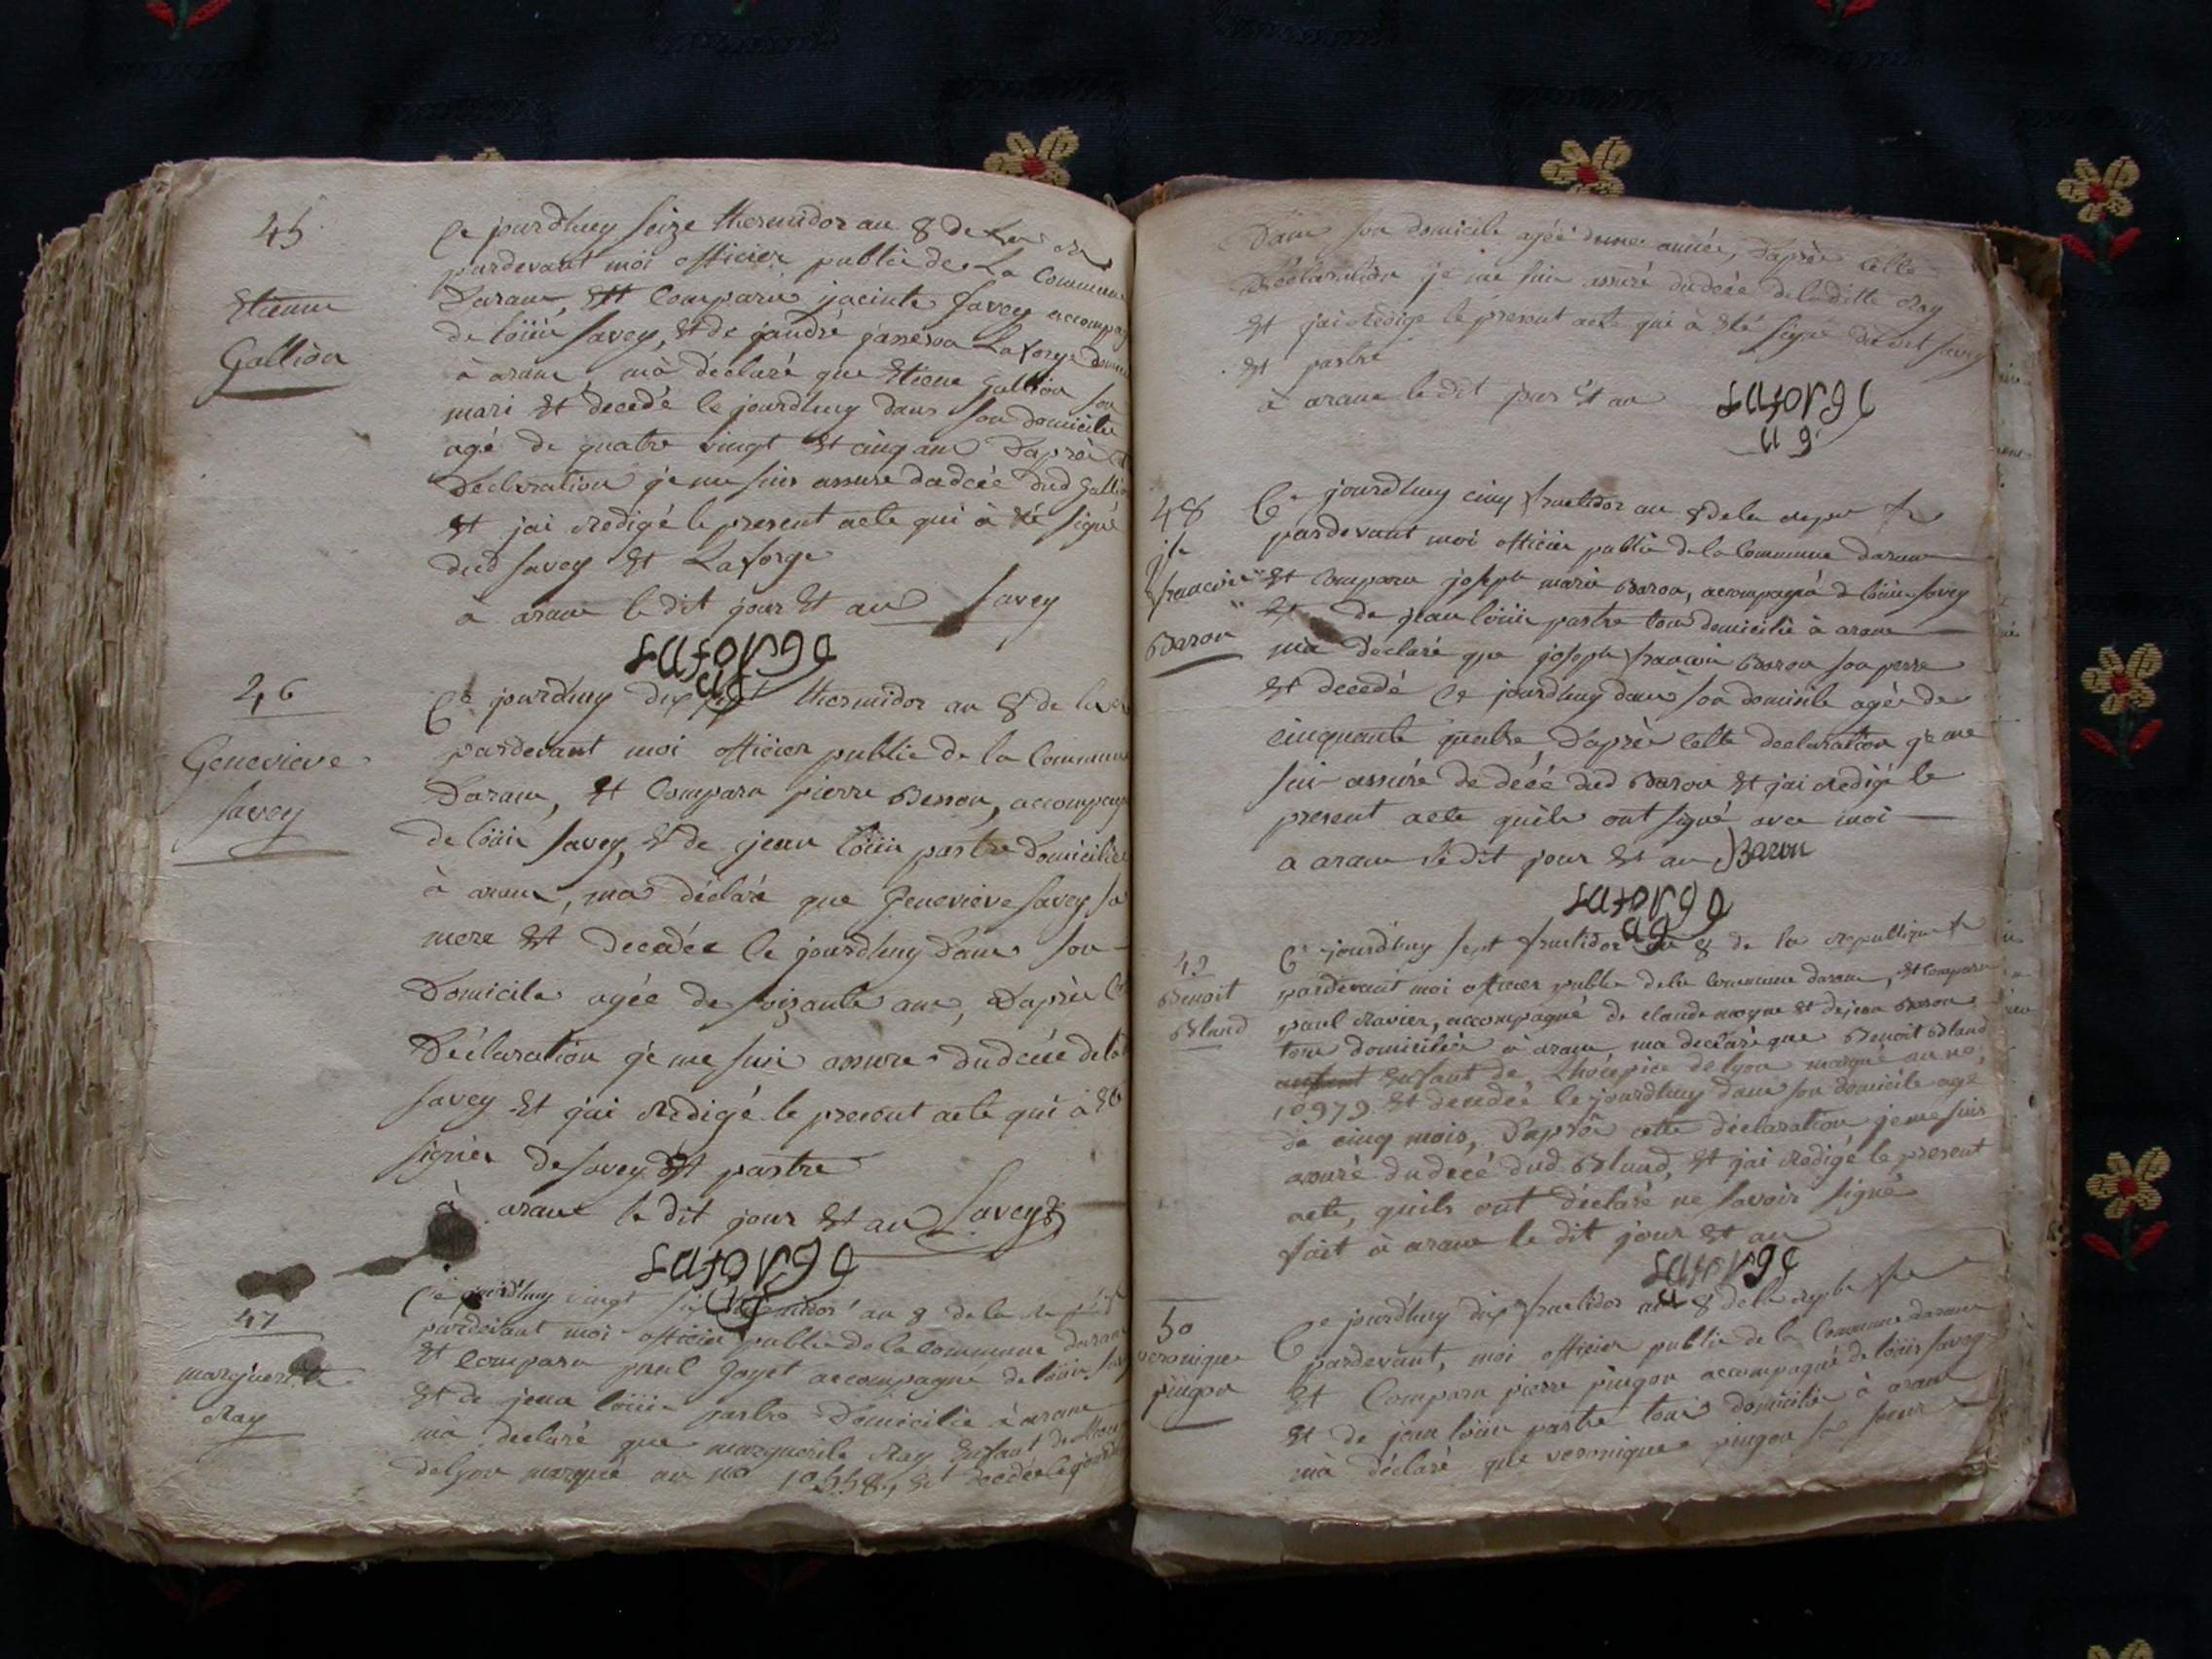 45
Etienne
Gallion
Ce jourdhuy seize thermidor an 8 de la
pardevant moi officier public de La Commune
Daranc, Et Comparu jacinte Savey accompag
de loüis Savey, Et de jandré Laforge
à aranc, mà déclaré que Etiene Gallion son
mari Et decedé le jourdhuy dans son domicile
agé de quatre vingt Et cinq ans Daprès
Declaration je me suis assuré dudcée dud Gallio
Et jai Redigé le present acte qui à été signé
dud Savey Et Laforge
a aranc le dit jour Et an Savey
Laforge
ag
46
Genevieve
Savey
Ce jourdhuy dix sept thermidor an 8 de la
pardevant moi officier public de la Commune
Daranc, Et Comparu pierre Besson, accompag
de loüis Savey, Et de jean loüis pastre Domicilié
à aranc, ma déclaré que Genevieve Savey sa
mere Et decedée le jourdhuy Dans son
Domicile agée de soizante ans, Daprès
Déclaration je me suis assuré dudcée de
Savey Et jai Redigé le present acte qui à Eté
signer de Savey Et pastre
à aranc le dit jour Et an Savey
Laforge
ag
47
marguerite
Ray
Ce jourdhuy vingt six thermidor an 8 de la
pardevant moi officier public de la Commune daranc
Et Comparu paul Goyet accompagné de loüis Sav
Et de jean loüis pastre Domicilié à aranc
mà declaré que marguerite Ray Enfant de
delyon marqué au no 10558, Et decedée le jourdhuy
Dans son domicile agée dune année, Daprès cette
Déclaration je me suis assuré dudcée de laditte Ray
Et jai Redigé le present acte qui à Eté signé dudit Savey
Et pastre
à aranc le dit jour Et an Laforge
ag
48
jh
francois
Baron
Ce jourdhuy cinq fructidor an 8 de la repu fr
pardevant moi officier public de la Commune daranc
Et Comparu joseph marie Baron, acompagné de loüis Savey
Et de jean loüis pastre tous domicilié à aranc
mà déclaré que joseph francois Baron son perre
Et decedé le jourdhuy dans son domicile agé de
cinquante quatre, Daprès cette declaration je me
suis assuré de décé dud Baron Et jai Redigé le
present acte quils ont signé avec moi
a aranc le dit jour Et an Baron
Laforge
ag
49
Benoit
Bland
Ce jourdhuy sept fructidor an 8 de la republique fr
pardevant moi officier public de la Commune daranc, Et Comparu
paul Ravier, accompagné de claude moyne Et de jean Besson
tous domicilié à aranc, ma declaré que Benoit Bland
enfant Enfant de Lhospice de lyon marqué au no
10979 Et decedée le jourdhuy dans son domicile agé
de cinq mois, Daprès cette déclaration je me suis
assuré du decé dud Bland, Et jai Redigé le present
acte, quils ont déclaré ne savoir signé
fait à aranc le dit jour Et an
Laforge
ag
50
veronique
pingon
Ce jourdhuy dix fructidor an 8 de la repb fr
pardevant, moi officier public de la Commune daranc
Et Comparu pierre pingon accompagné de loüis Savey
Et de jean loüis pastre tous domicilié à aranc
mà déclaré que veronique pingon sa soeur